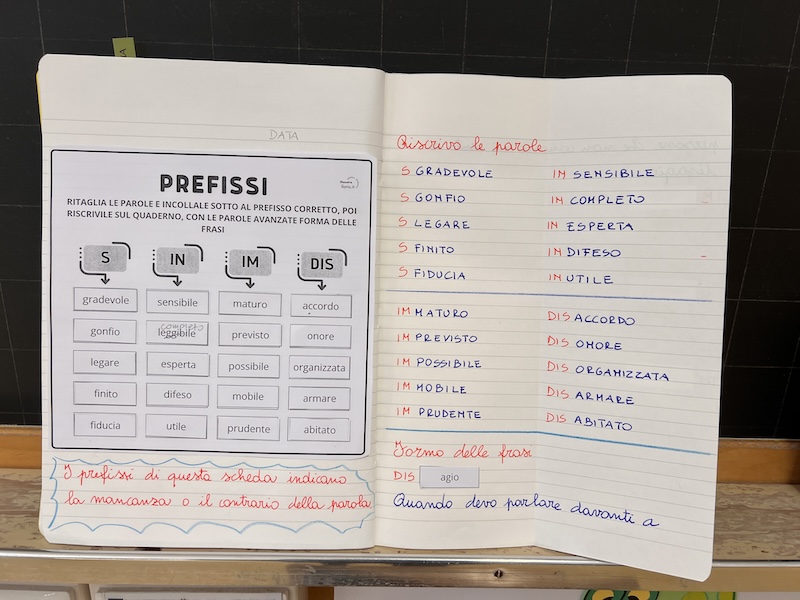 DATA
PREFISSI
RITAGLIA LE PAROLE E INCOLLALE SOTTO AL PREFISSO CORRETTO, POI
RISCRIVILE SUL QUADERNO, CON LE PAROLE AVANZATE FORMA DELLE
FRASI
S IN IM DIS
gradevole sensibile maturo accordo
completo
gonfio leggibile previsto onore
legare esperta possibile organizzata
finito difeso mobile armare
fiducia utile prudente abitato
I prefissi di questa scheda indicano
la mancanza o il contrario della parola
Riscrivo le parole
S GRADEVOLE IN SENSIBILE
S GONFIO IN COMPLETO
S LEGARE IN ESPERTA
S FINITO IN DIFESO
S FIDUCIA IN UTILE
IM MATURO DIS ACCORDO
IM PREVISTO DIS ONORE
IM POSSIBILE DIS ORGANIZZATA
IM MOBILE DIS ARMARE
IM PRUDENTE DIS ABITATO
Formo delle frasi
DIS agio
Quando devo parlare davanti a